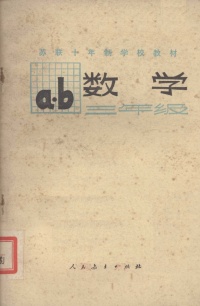 九年制十年制学校教材
a·b
数学
三年级
人民教育出版社